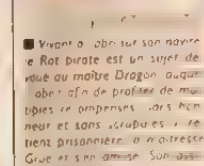 Vivant à abri sur son navire
e Rat pirate est un sujet de
voué au maître Dragon auque
obéi afin de profiter de mu
tiples récompenses. ans hon
neur et sans scrupules, e
tient prisonnière a maîtresse
Grue et s'en amuse. Son